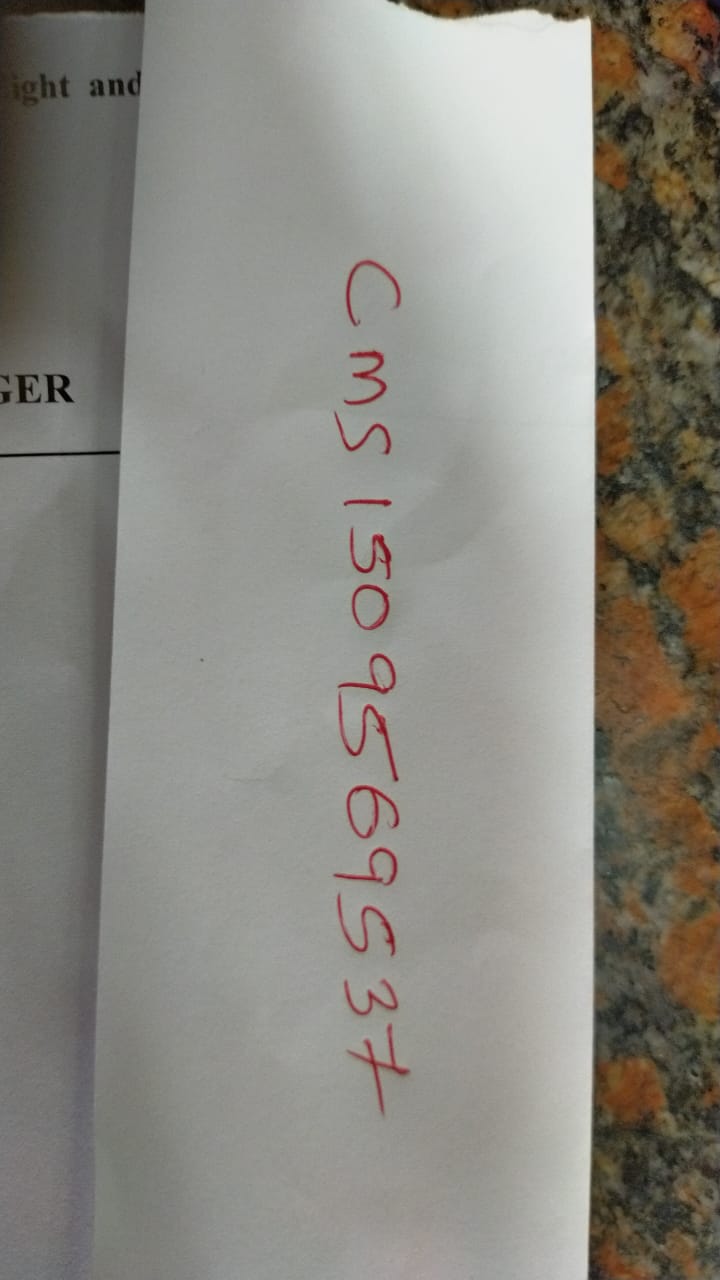 ight and
GER
CMS150956 9537